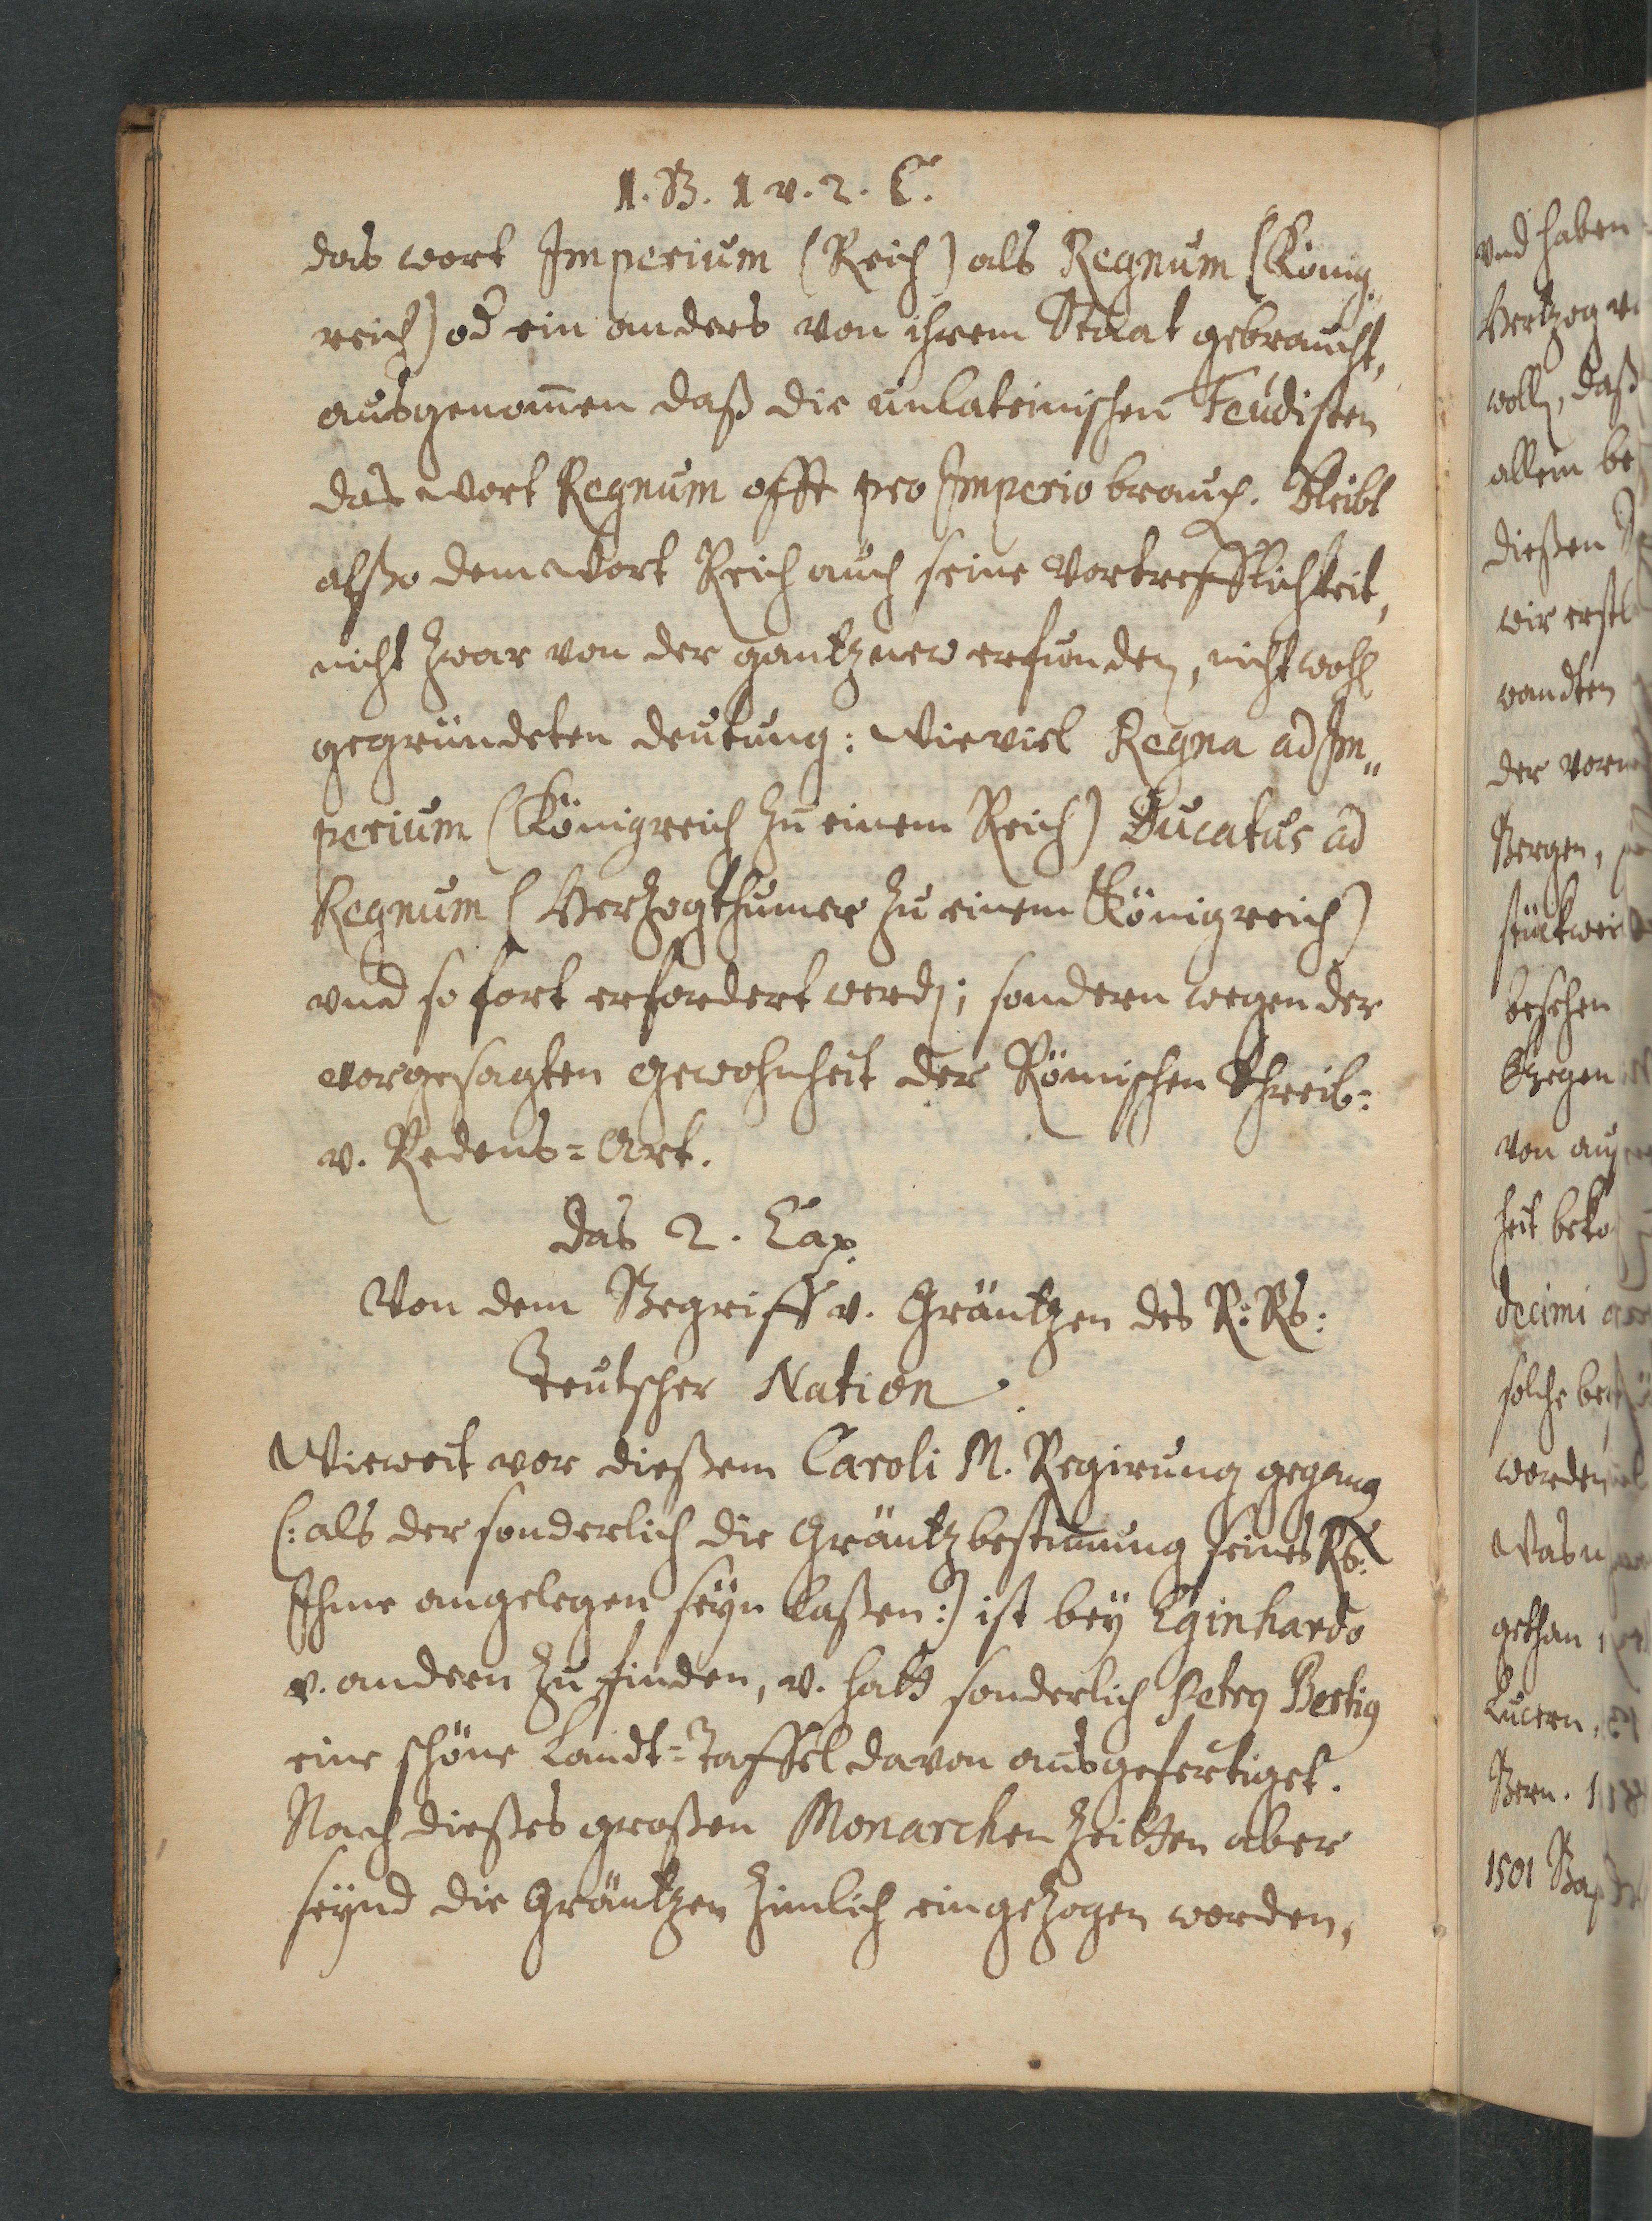 1. B. 1 v. 2. C.
das wort Imperium (Reich) als Regnum (König-
reich) od ein anders von ihrem Staat gebraucht,
ausgenom̅en daß die unlateinischen Feudisten
das wort Regnum offt pro Imperio brauch. Bleibt
alßo dem wort Reich auch seine Vortrefflichkeit,
nicht zwar von der gantz new erfunden, nicht wohl
gegründeten deutung: wie viel Regna ad Im„
perium (Königreich zu einem Reich) Ducatus ad
Regnum (Herzogthumer zu einem Königreich)
vnd so fort erfordert werdn; sondern wegen der
vorgesagten gewohnheit der Römischen Schreib=
v. Redens=Art.
das 2. Cap.
Von dem Begriff v. Gräntzen des R: Rs:
Teutscher Nation.
Wie weit vor dießem Caroli M. Regirung gegang
(: als der sonderlich die Gräntzbestim̅ung seines Rs:
Ihme angelegen seyn laßen:) ist bey Eginhardo
v. andern zu finden, v. hatt sonderlich Petrg Bertig
eine schöne Landt=Taffel davon ausgefertiget.
Nach dießes großen Monarchen Zeitten aber
seynd die Gräntzen zimlich eingezogen worden,
vnd haben
Hertzog
wolln, daß
allem be
dießen
wir erstl
wandten
der vorn
Bergen,
stückwei
besehen
Gegen
von auß
heit beko
decimi
solche be
worden
Was n
gethan
Lucern,
Bern. 1
1501 Bas